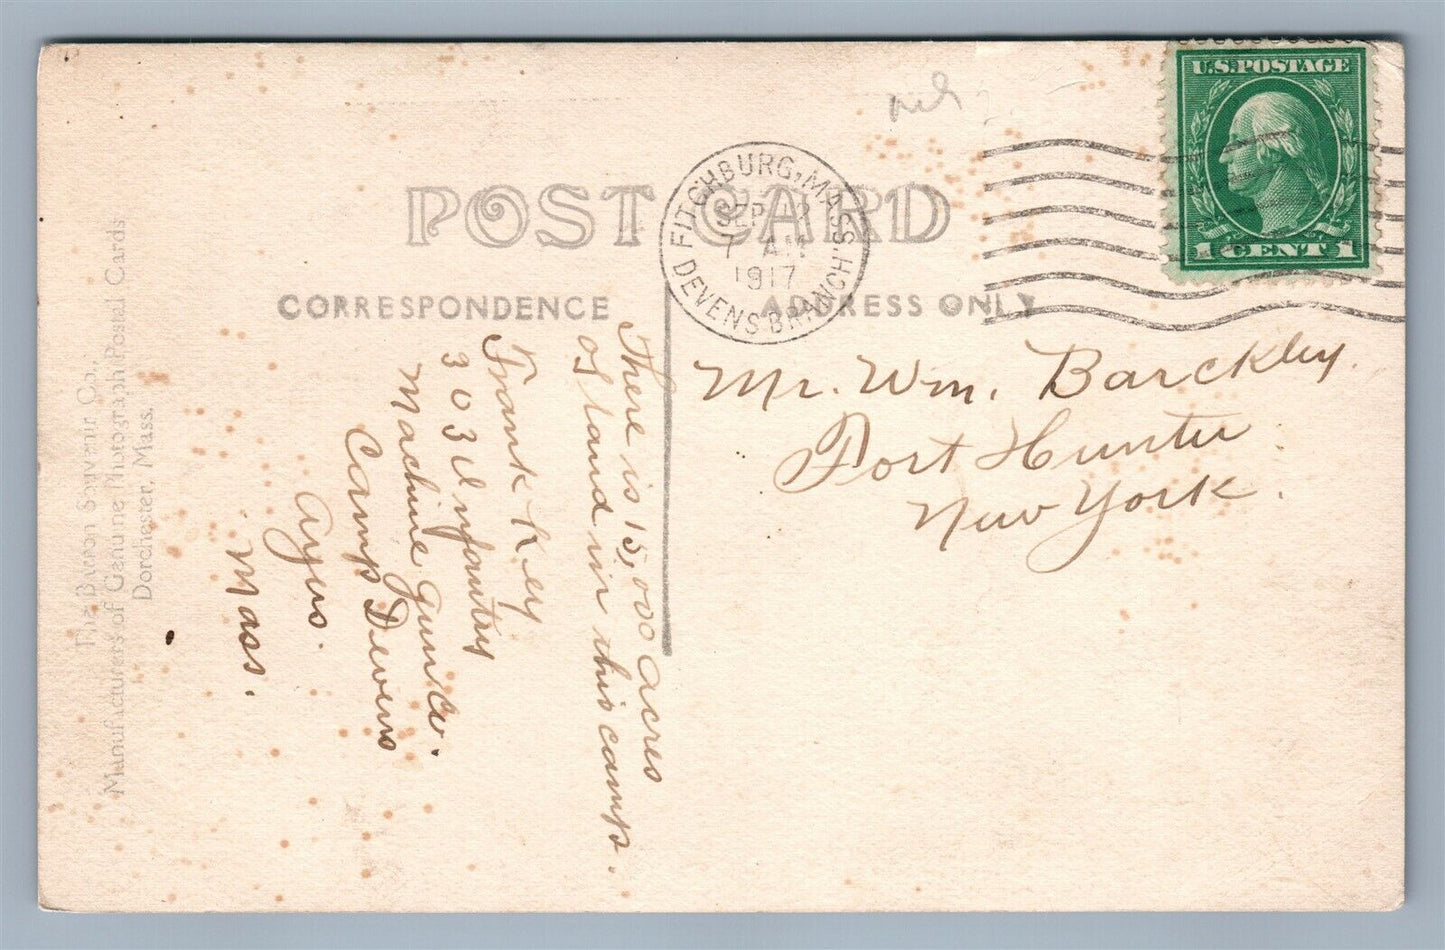 U.S.POSTAGE
1 CENT 1
FITCHBURG, MASS.
SEP 12
7 AM
1917
DEVENS BRANCH
POST CARD
CORRESPONDENCE
ADDRESS ONLY
Mr. Wm. Barckley.
Port Hunter
New York.
There is 15,000 acres
of land in this camp.
Frank Key
303 Infantry
Machine Gun Co.
Camp Devens
Ayers.
Mass.
The Barron Souvenir Co.,
Manufacturers of Genuine Photograph Postal Cards
Dorchester, Mass.